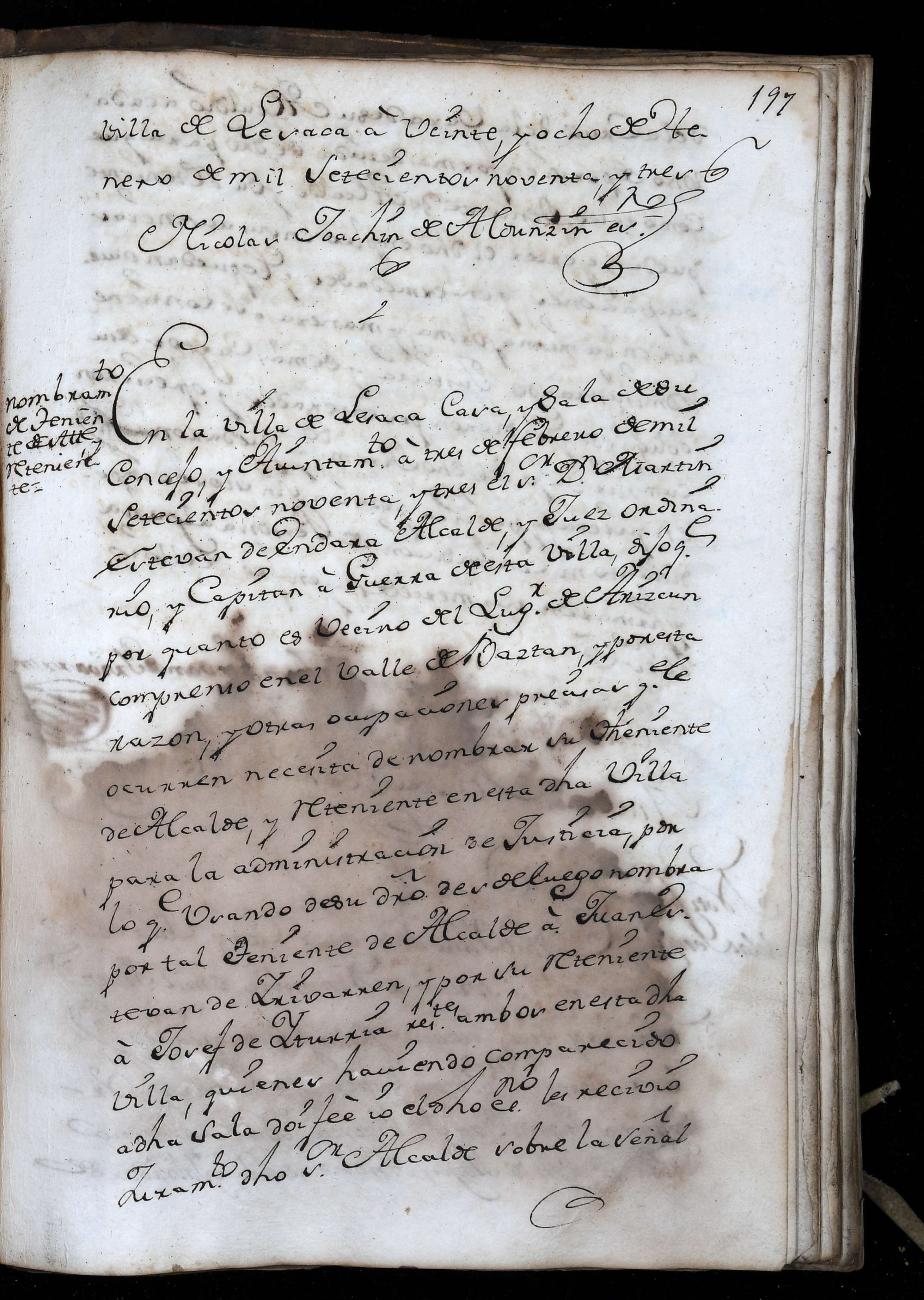 197
villa de Lesaca à Veinte, y ocho de He-
nero de mil Setecientos noventa, y tres
Nicolas Joachin de Aldunzin es.no
2
nombram.to
de Tenien
te de Alle y
Rtenien-
te=
En la villa de Lesaca Casa, y Sala de su
Concejo, y Aiuntam.to à tres de febrero de mil
Setecientos noventa, y tres el s.or D.n Martin
Estevan de Endara Alcalde, y Juez ordina-
rio, y Capitan à Guerra de esta villa, dijo q.e
por quanto es Vecino del Lug.r de Arizcun
compreniso en el Valle de Baztan, y por esta
razon, y otras ocupaciones precisas q.e le
ocurren necesita de nombrar su theniente
de Alcalde, y Rteniente en esta dha Villa
para la administracion de Justicia, por
lo q.e Usando de su drõ desde luego nombra
por tal Teniente de Alcalde à Juan Es-
tevan de Yrivarren, y por su Rteniente
à Josef de Yturria res.tes ambos en esta dha
Villa, quienes haviendo comparecido
a dha Sala doi feè io el dho es.no les recivió
Juram.to dho s.or Alcalde sobre la señal